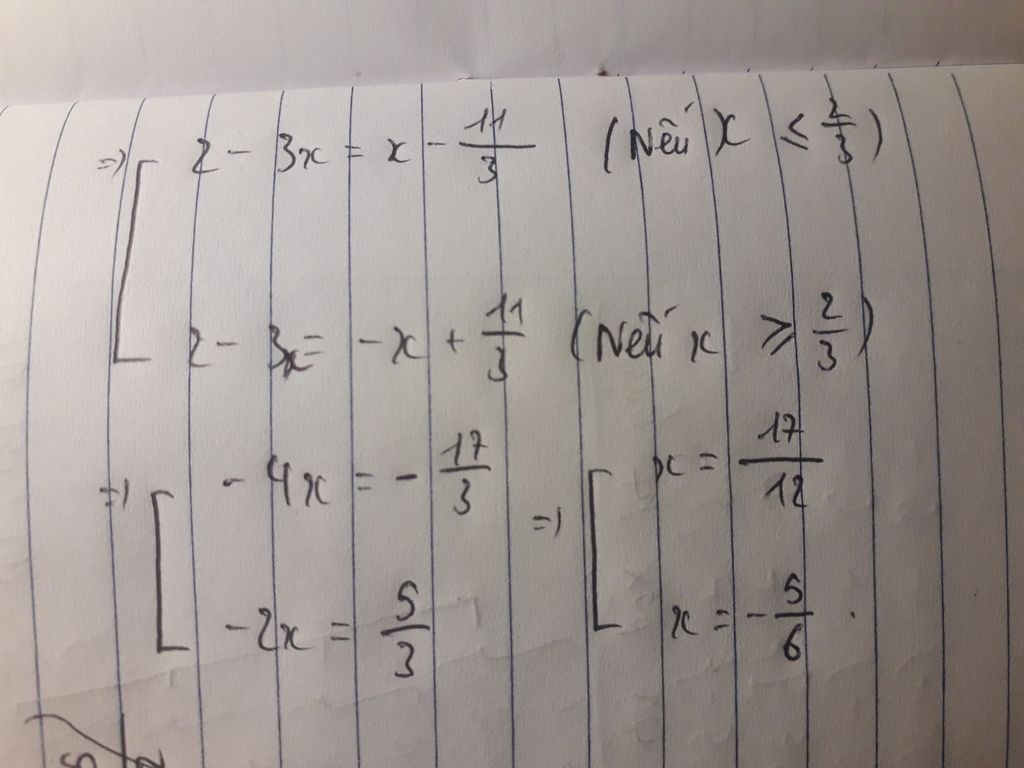 => [ 2 - 3x = x - 11/3 (Nếu x ≤ 2/3)
2 - 3x = -x + 11/3 (Nếu x ≥ 2/3)
=> [ -4x = -17/3 => [ x = 17/12
-2x = 5/3 x = -5/6 .